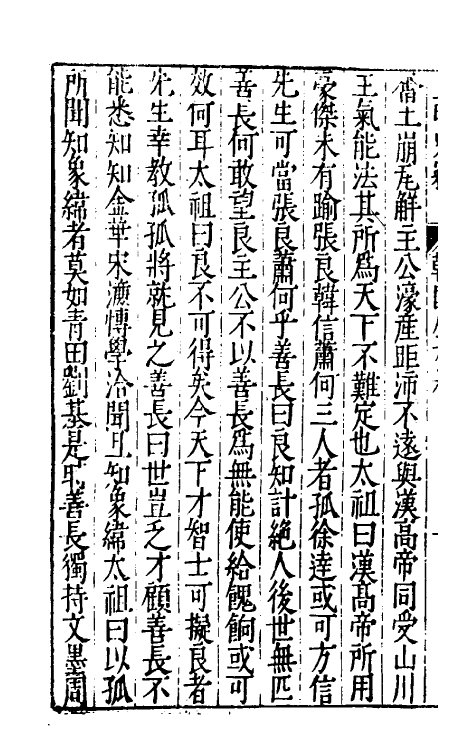 當土崩瓦解主公濠產距沛不遠與漢高帝同受山川
王氣能法其所爲天下不難定也太祖曰漢高帝所用
豪傑未有踰張良韓信蕭何三人者孤徐達或可方信
先生可當張良蕭何乎善長曰良知計絕人後世無匹
善長何敢望良主公不以善長爲無能使給餽餉或可
效何耳太祖曰良不可得矣今天下才智士可擬良者
先生幸教孤孤將就見之善長曰世豈乏才顧善長不
能悉知知金華宋濂愽學洽聞且知象緯太祖曰以孤
所聞知象緯者莫如青田劉基是耶善長獨持文墨周